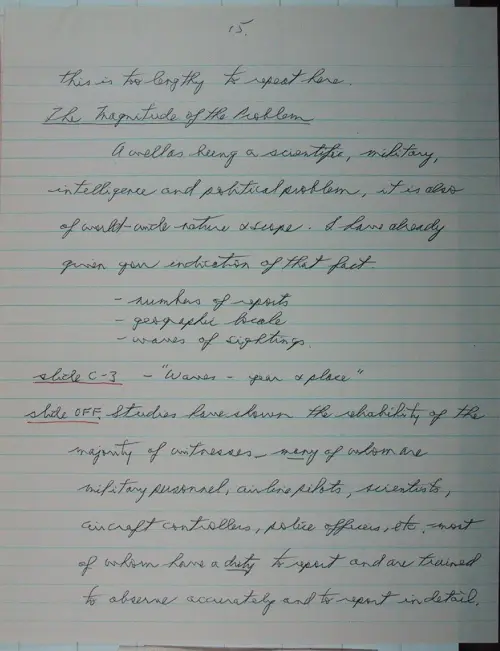 15.
this is too lengthy to repeat here.
The Magnitude of the Problem
As well as being a scientific, military,
intelligence and political problem, it is also
of world-wide nature & scope. I have already
given you indication of that fact
- numbers of reports
- geographic locale
- waves of sightings.
slide C-3 - "Waves - year & place"
slide OFF. Studies have shown the reliability of the
majority of witnesses - many of whom are
military personnel, airline pilots, scientists,
aircraft controllers, police officers, etc. - most
of whom have a duty to report and are trained
to observe accurately and to report in detail.